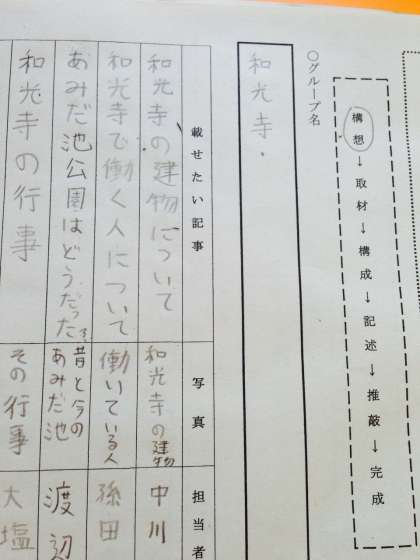 構想→取材→構成→記述→推敲→完成
○グループ名
和光寺
載せたい記事 写真 担当者
和光寺の建物について 和光寺の建物 中川
和光寺で働く人について 働いている人 孫田
あみだ池公園はどうだった 昔と今のあみだ池 渡辺
和光寺の行事 その行事 大塩